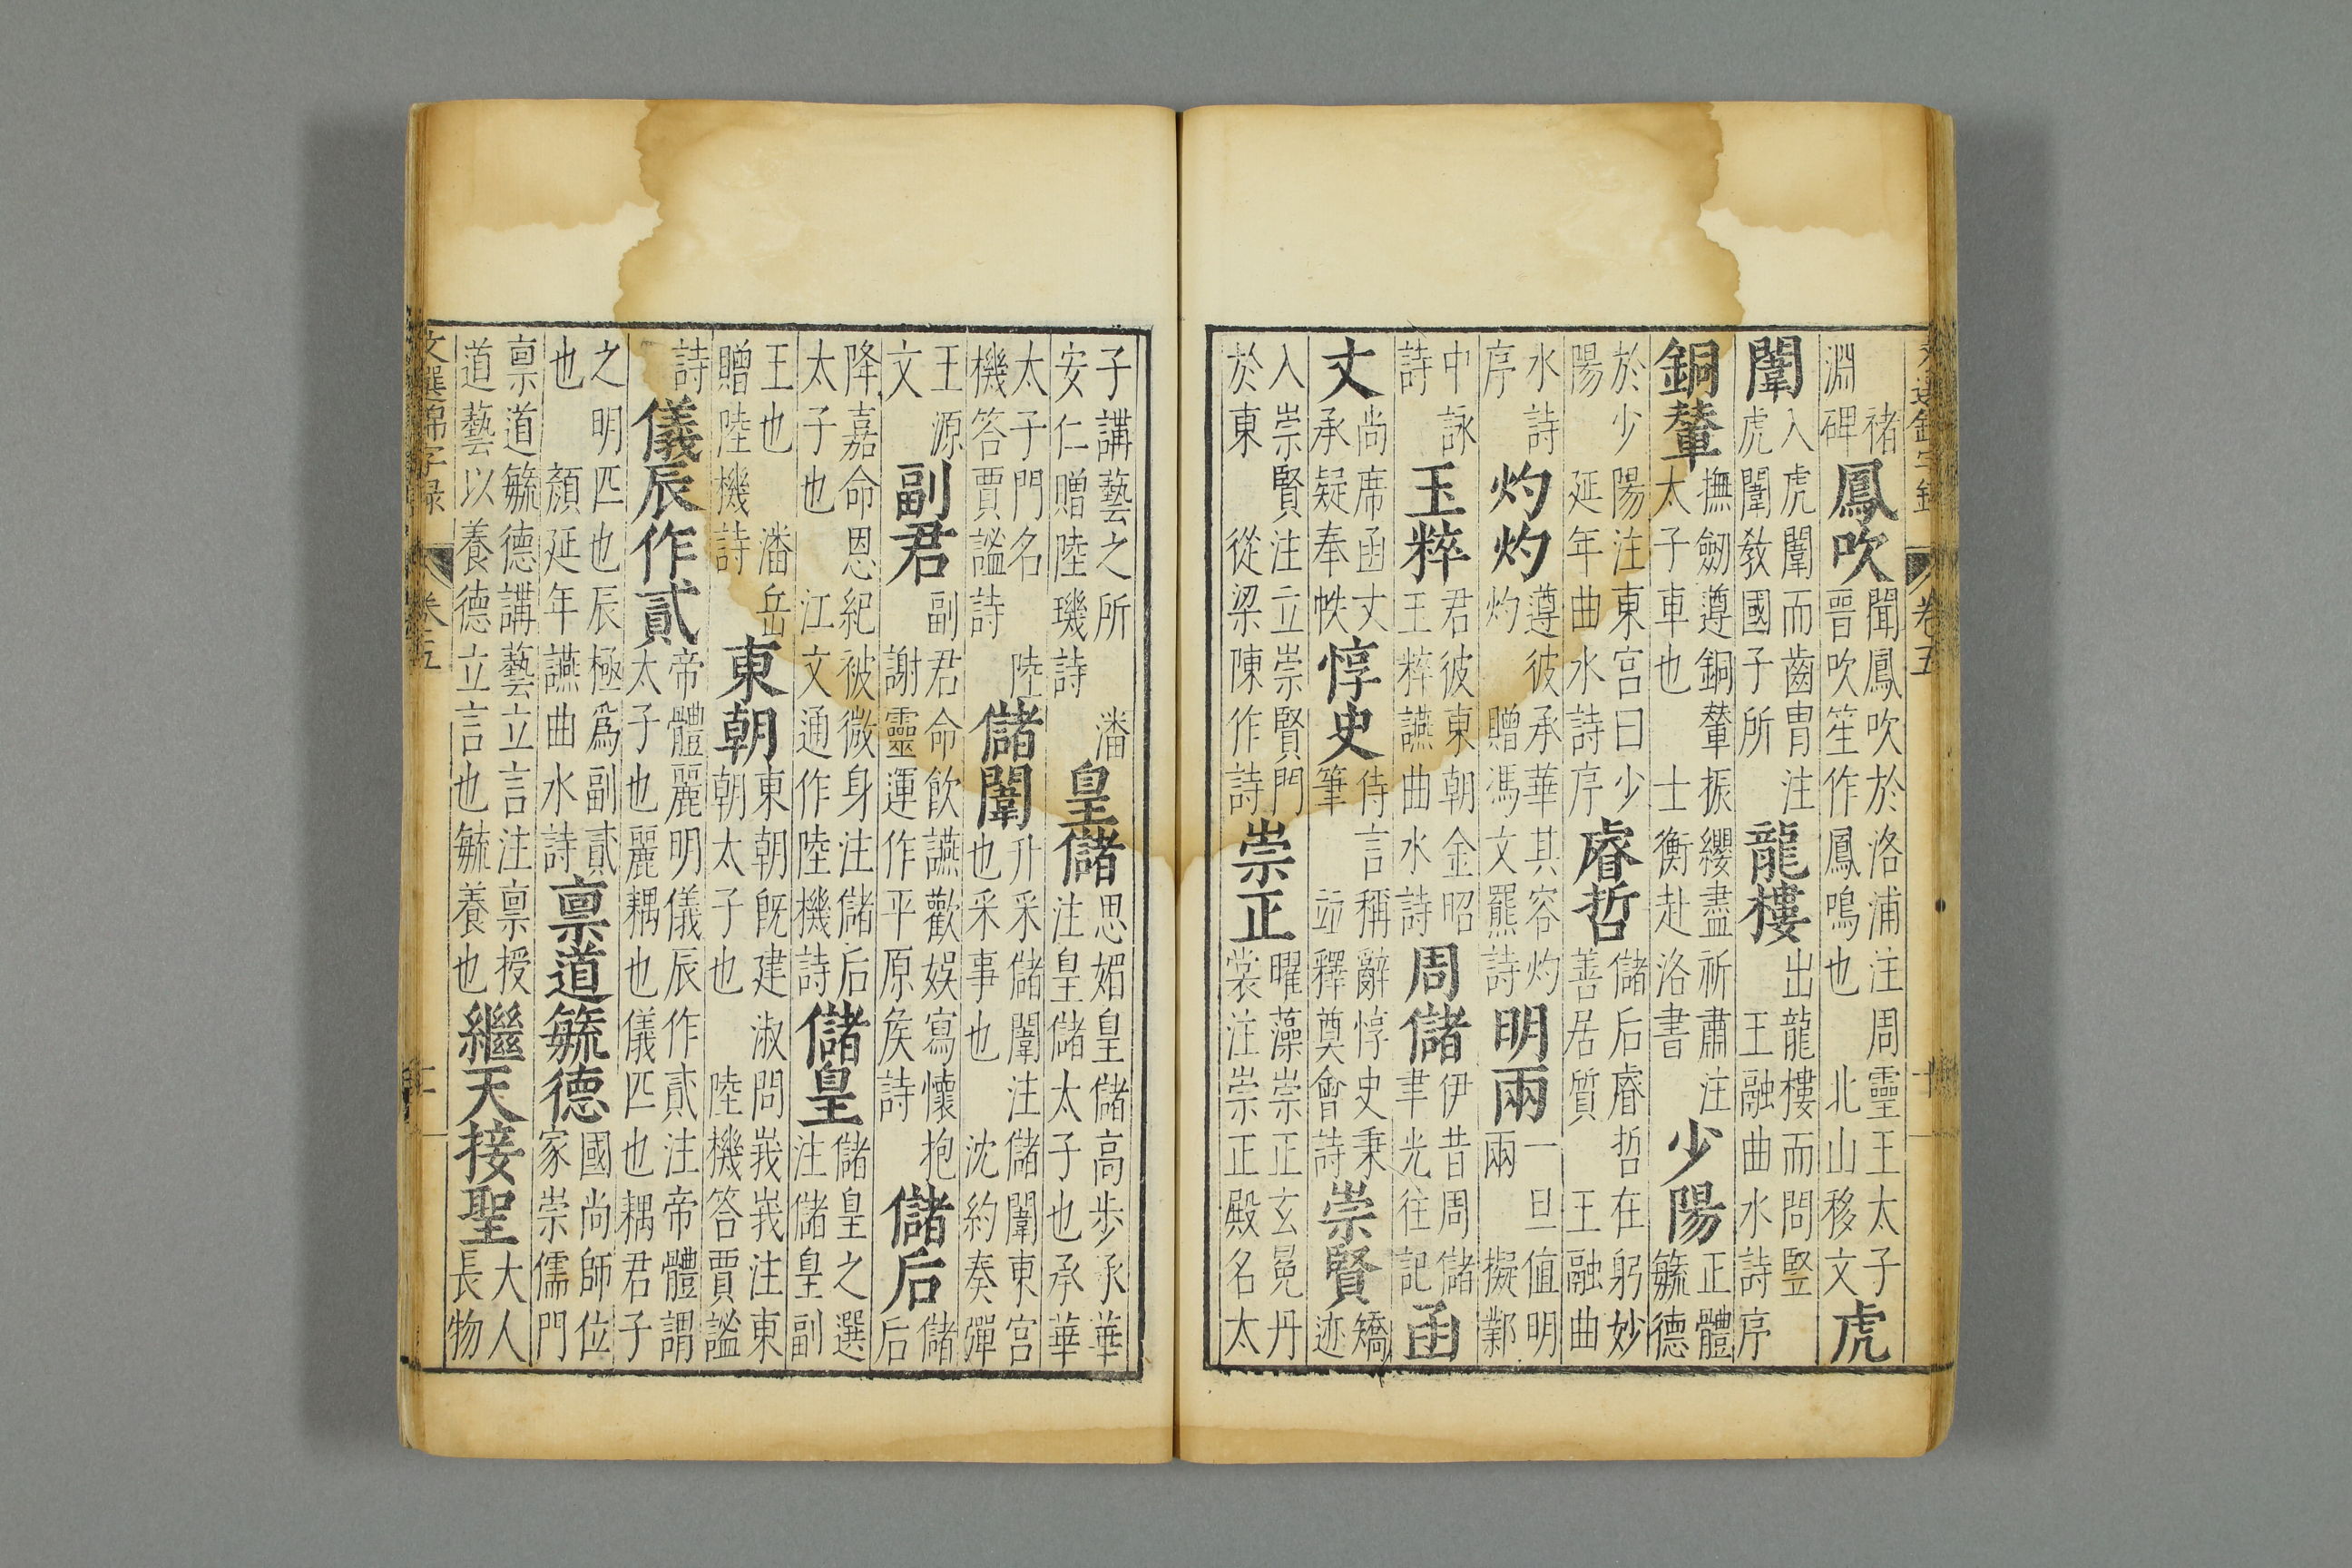 褚淵碑鳳吹聞鳳吹於洛浦注周靈王太子晉吹笙作鳳鳴也北山移文虎
闈入虎闈而齒冑注虎闈教國子所龍樓出龍樓而問豎王融曲水詩序
銅輦撫劒遵銅輦振纓盡祈肅注太子車也士衡赴洛書少陽正體毓德
於少陽注東宮曰少陽延年曲水詩序睿哲儲后睿哲在躬妙善居質王融曲
水詩序灼灼遵彼承華其容灼灼贈馮文羆詩明兩一旦值明兩擬鄴
中詠詩玉粹君彼東朝金昭王粹讌曲水詩周儲伊昔周儲聿光往記函
丈尚席函丈承疑奉帙惇史侍言稱辭惇史秉筆竝釋奠會詩崇賢矯迹
入崇賢注立崇賢門於東從梁陳作詩崇正曜藻崇正玄冕丹裳注崇正殿名太
子講藝之所潘安仁贈陸璣詩皇儲思媚皇儲高步承華注皇儲太子也承華
太子門名陸機答賈謐詩儲闈升采儲闈注儲闈東宮也采事也沈約奏彈
王源文副君副君命飲讌歡娛寫懷抱謝靈運作平原矦詩儲后儲后
降嘉命恩紀被微身注儲后太子也江文通作陸機詩儲皇儲皇之選注儲皇副
王也潘岳贈陸機詩東朝東朝既建淑問峩峩注東朝太子也陸機答賈謐
詩儀辰作貳帝體麗明儀辰作貳注帝體謂太子也麗耦也儀匹也耦君子
之明匹也辰極爲副貳也顏延年讌曲水詩稟道毓德國尚師位家崇儒門
稟道毓德講藝立言注稟授道藝以養德立言也毓養也繼天接聖大人長物
文選錦字錄 卷五